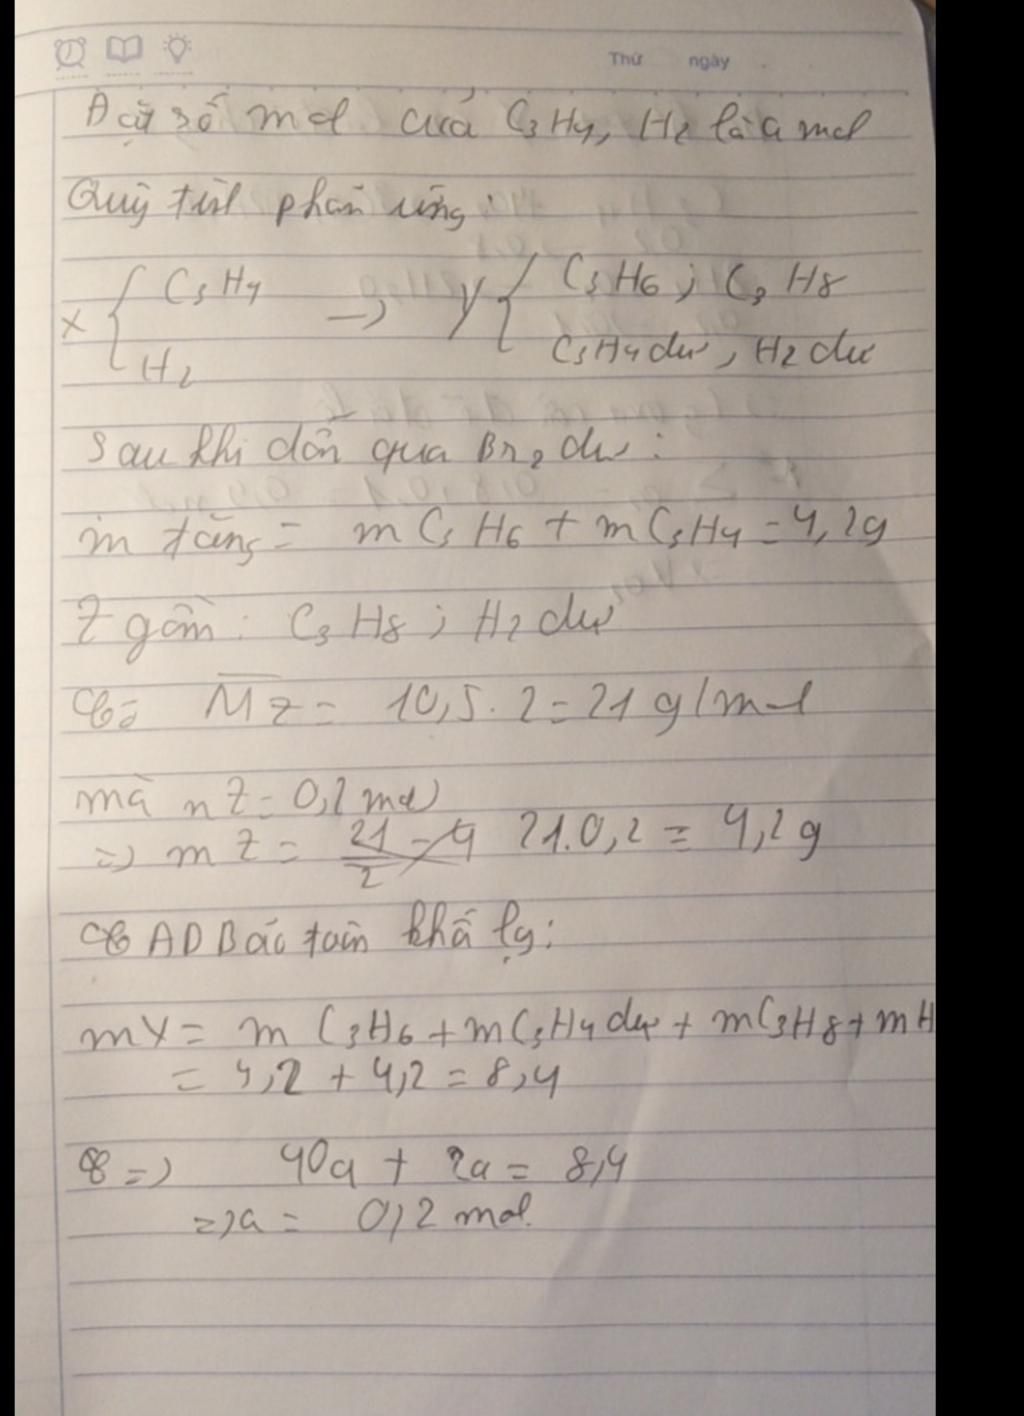 Thứ ngày
Đặt số mol của C3H4, H2 là a mol
Quá trình phản ứng:
X { C3H4 → Y { C3H6 ; C3H8
H2 C3H4 dư, H2 dư
Sau khi dẫn qua Br2 dư:
m tăng = mC3H6 + mC3H4 = 4,2g
Z gồm: C3H8 ; H2 dư
Có: M̅z = 10,5 . 2 = 21 g/mol
mà nZ = 0,2 mol
=> mZ = 21.0,2 = 4,2g
AD Bảo toàn khối lg:
mY = m C3H6 + mC3H4 dư + mC3H8 + mH
= 4,2 + 4,2 = 8,4
=> 40a + 2a = 8,4
=> a = 0,2 mol.